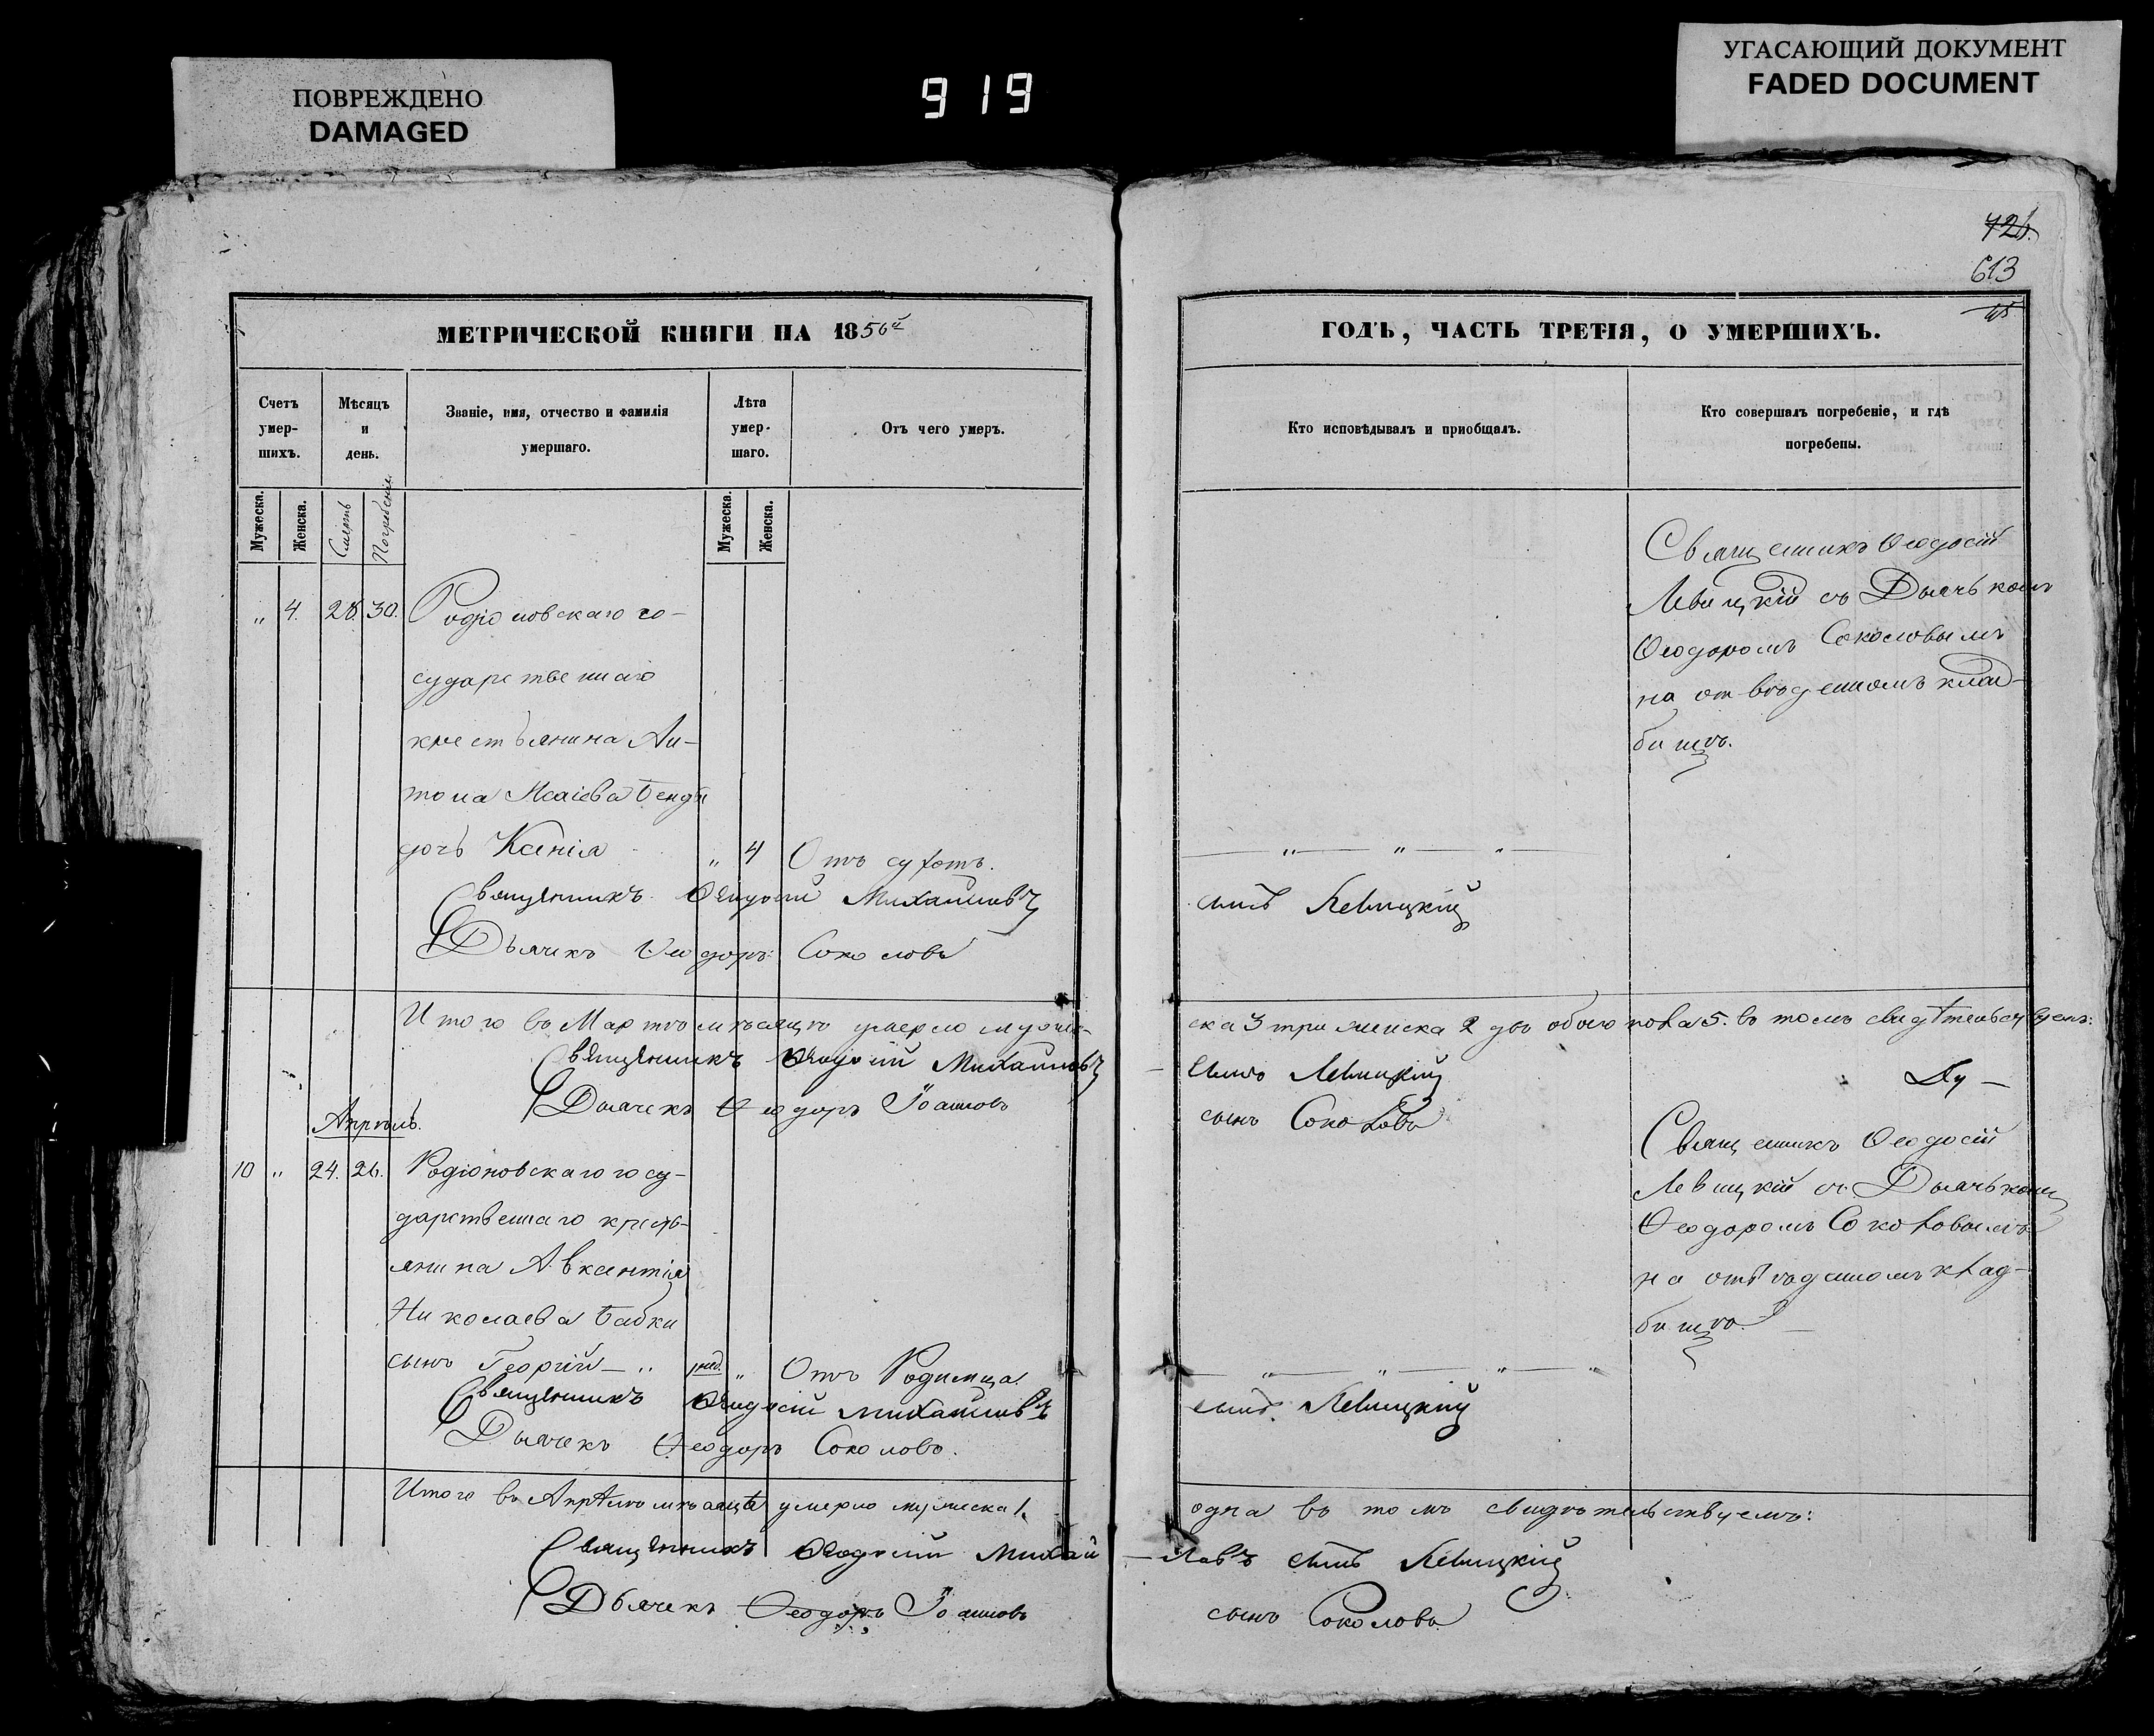 ПОВРЕЖДЕНО
DAMAGED
919
УГАСАЮЩИЙ ДОКУМЕНТ
FADED DOCUMENT
613
МЕТРИЧЕСКОЙ КНИГИ НА 1856й
Счетъ умер-шихъ.
Мѣсяцъ и день.
Званіе, имя, отчество и фамилія умершаго.
Лѣта умер-шаго.
Отъ чего умеръ.
Мужеска.
Женска.
Смерть
Погребеніе.
Мужеска.
Женска.
„ 4. 28. 30. Родіоновскаго го-
сударственнаго
крестьянина Ан-
тона Исаіева
дочь Ксенія „ 4 Отъ сухотъ.
Священникъ Ѳеодосій Михайловъ
Дьячекъ Ѳеодоръ Соколовъ
Итого въ Мартѣ мѣсяцѣ умерло муже-
Священникъ Ѳеодосій Михайловъ
Дьячекъ Ѳеодоръ Іоанновъ
Апрѣль.
10 „ 24. 26. Родіоновскаго госу-
дарственнаго кресть-
янина Авксентія
Николаева Бабки
сынъ Георгій „ „ Отъ Родимца.
Священникъ Ѳеодосій Михайловъ
Дьячекъ Ѳеодоръ Соколовъ.
Итого въ Апрѣлѣ мѣсяцѣ умерло мужеска 1.
Священникъ Ѳеодосій Михай
Дьячекъ Ѳеодоръ Іоанновъ
ГОДЪ, ЧАСТЬ ТРЕТІЯ, О УМЕРШИХЪ.
Кто исповѣдывалъ и приобщалъ.
Кто совершалъ погребеніе, и гдѣ погребены.
Священникъ Ѳеодосій
Левицкій съ Дьячькомъ
Ѳеодоромъ Соколовымъ
на отведенномъ клад-
бищѣ.
„ „ „
сынъ Левицкій
ска 3 три женска 2 двѣ обоего пола 5. въ томъ свидѣтельствуемъ:
сынъ Левицкій
сынъ Соколовъ
Священникъ Ѳеодосій
Левицкій съ Дьячькомъ
Ѳеодоромъ Соколовымъ
на отведенномъ клад-
бищѣ.
„ „ „ „
сынъ Левицкій
одна въ томъ свидѣтельствуемъ:
ловъ сынъ Левицкій
сынъ Соколовъ